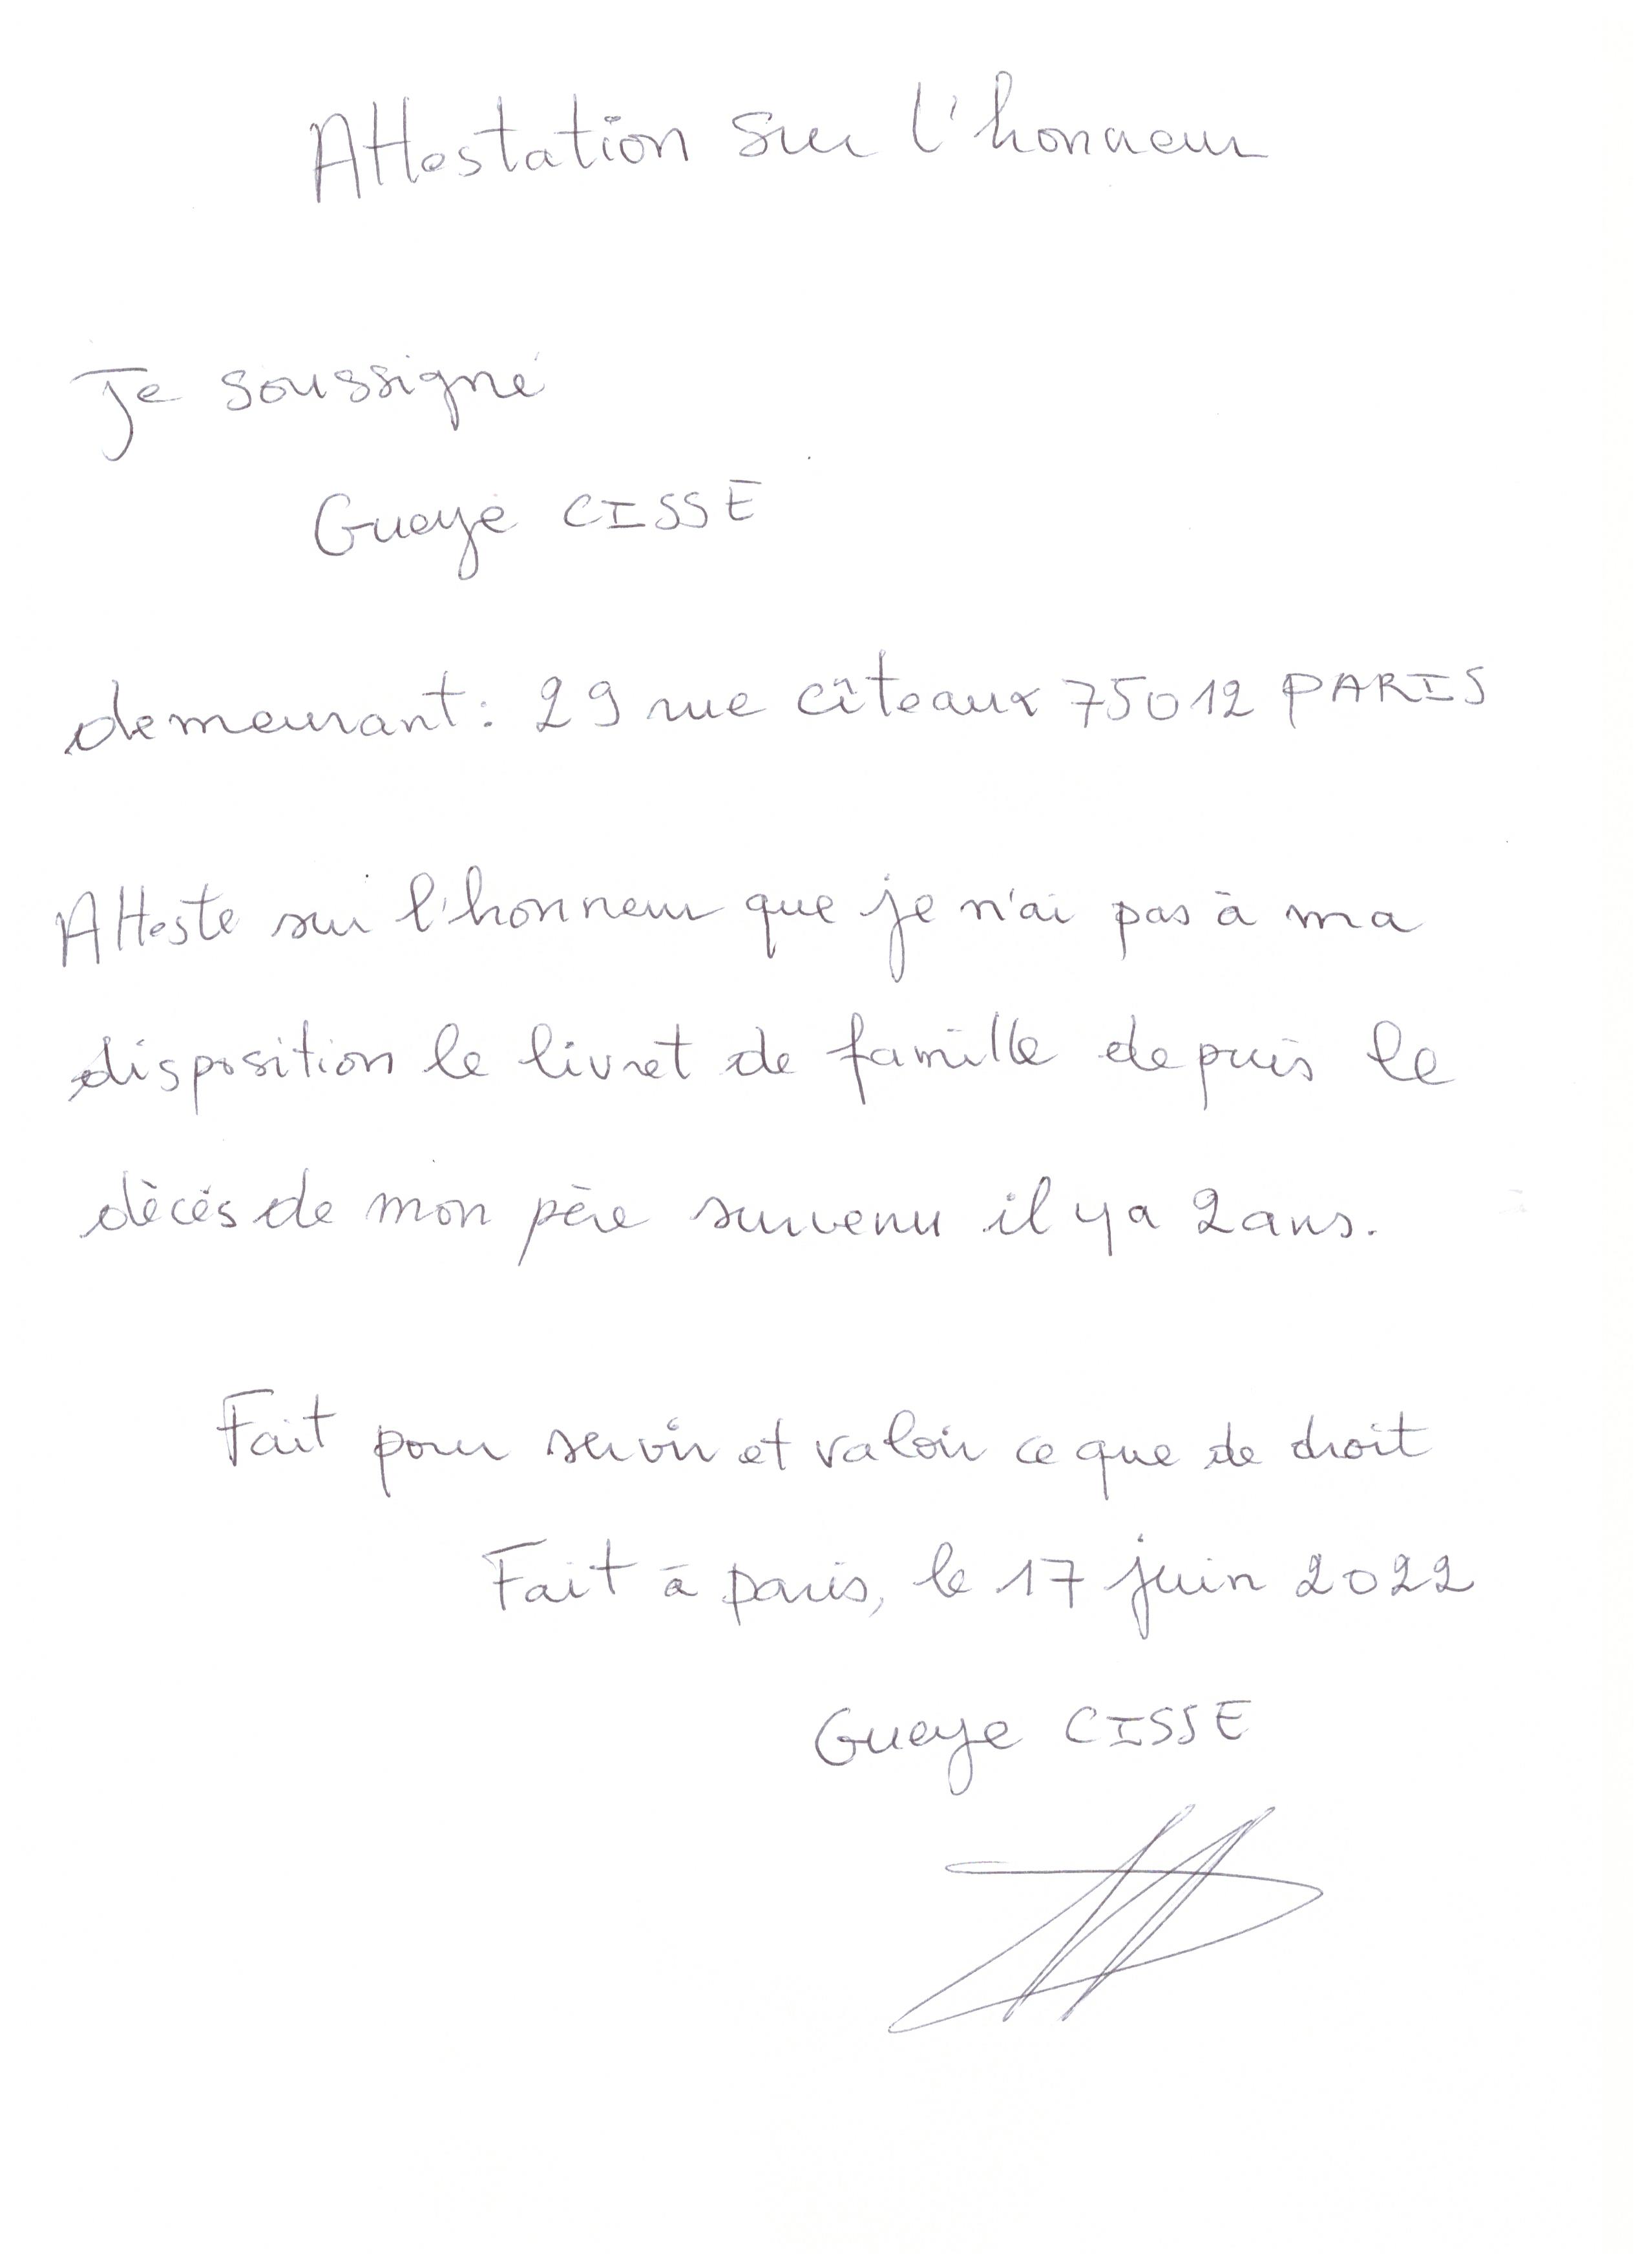 Attestation sur l'honneur
Je soussigné
Gueye CISSE
demeurant: 29 rue cîteaux 75012 PARIS
Atteste sur l'honneur que je n'ai pas à ma
disposition le livret de famille depuis le
dècès de mon père survenu il y a 2 ans.
Fait pour servir et valoir ce que de droit
Fait à paris, le 17 juin 2022
Gueye CISSE